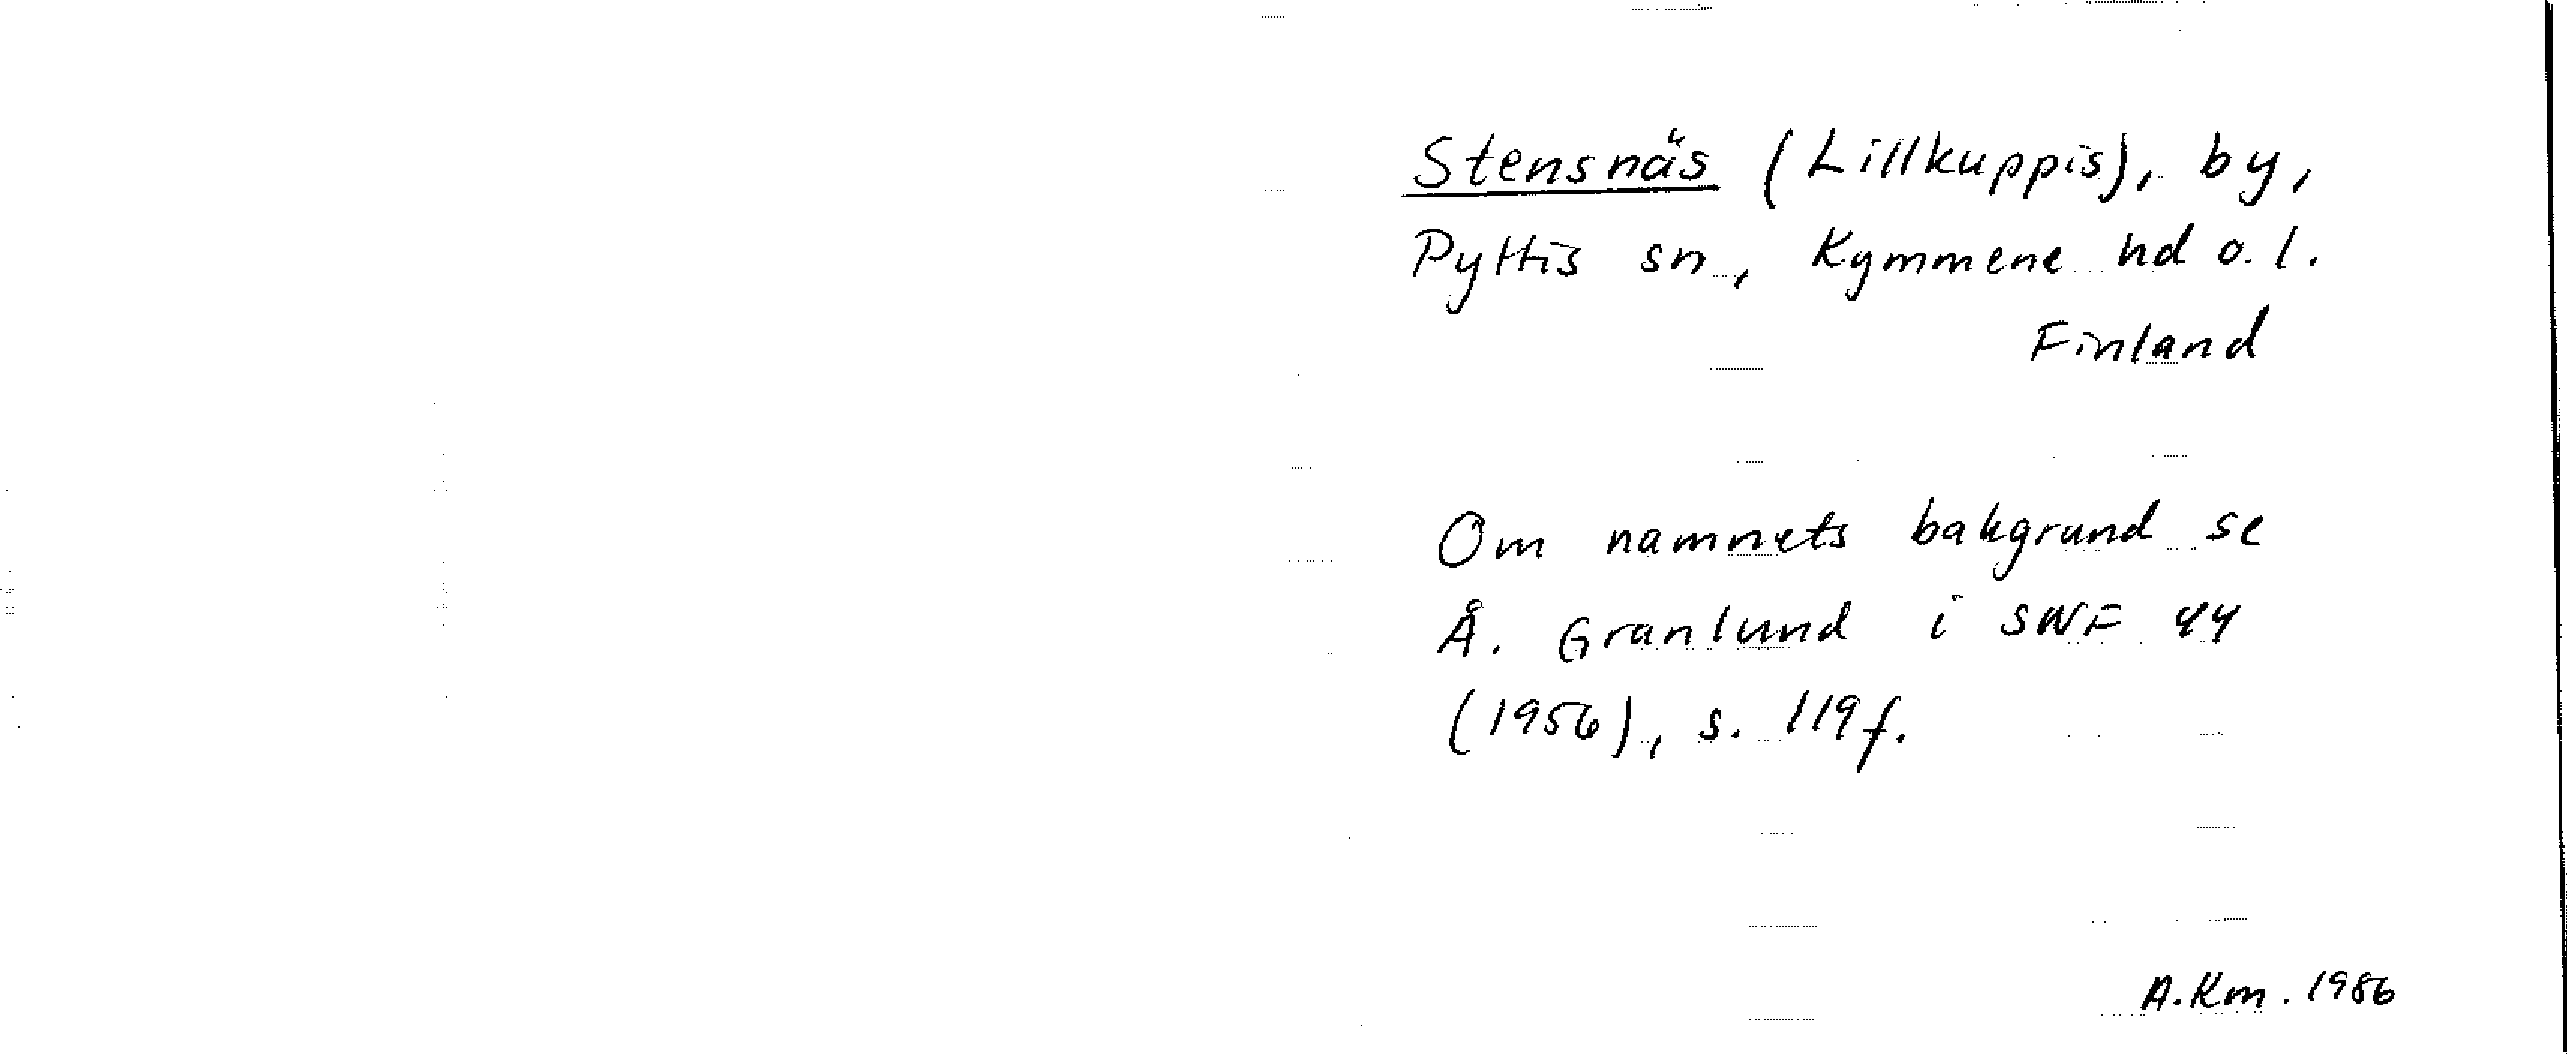 Stensnäs (Lillkuppis), by,
Pyttis sn, Kymmene hd o. l.
Finland
Om namnets bakgrund se
Å. Granlund i SNF 44
(1956), s. 119 f.
A. Km. 1986